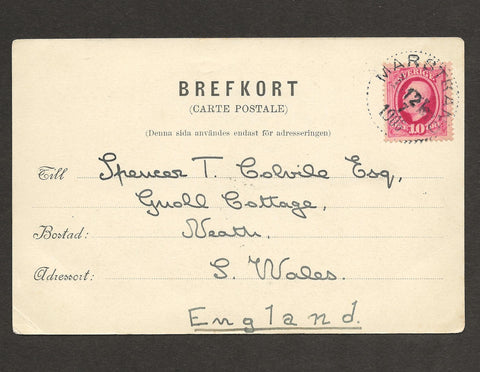 BREFKORT
(CARTE POSTALE)
(Denna sida användes endast för adresseringen)
SVERIGE
10
MARSTRAND
12
Till Spencer T. Colvile Esq,
Gnoll Cottage,
Bostad: Neath,
Adressort: S. Wales.
England.